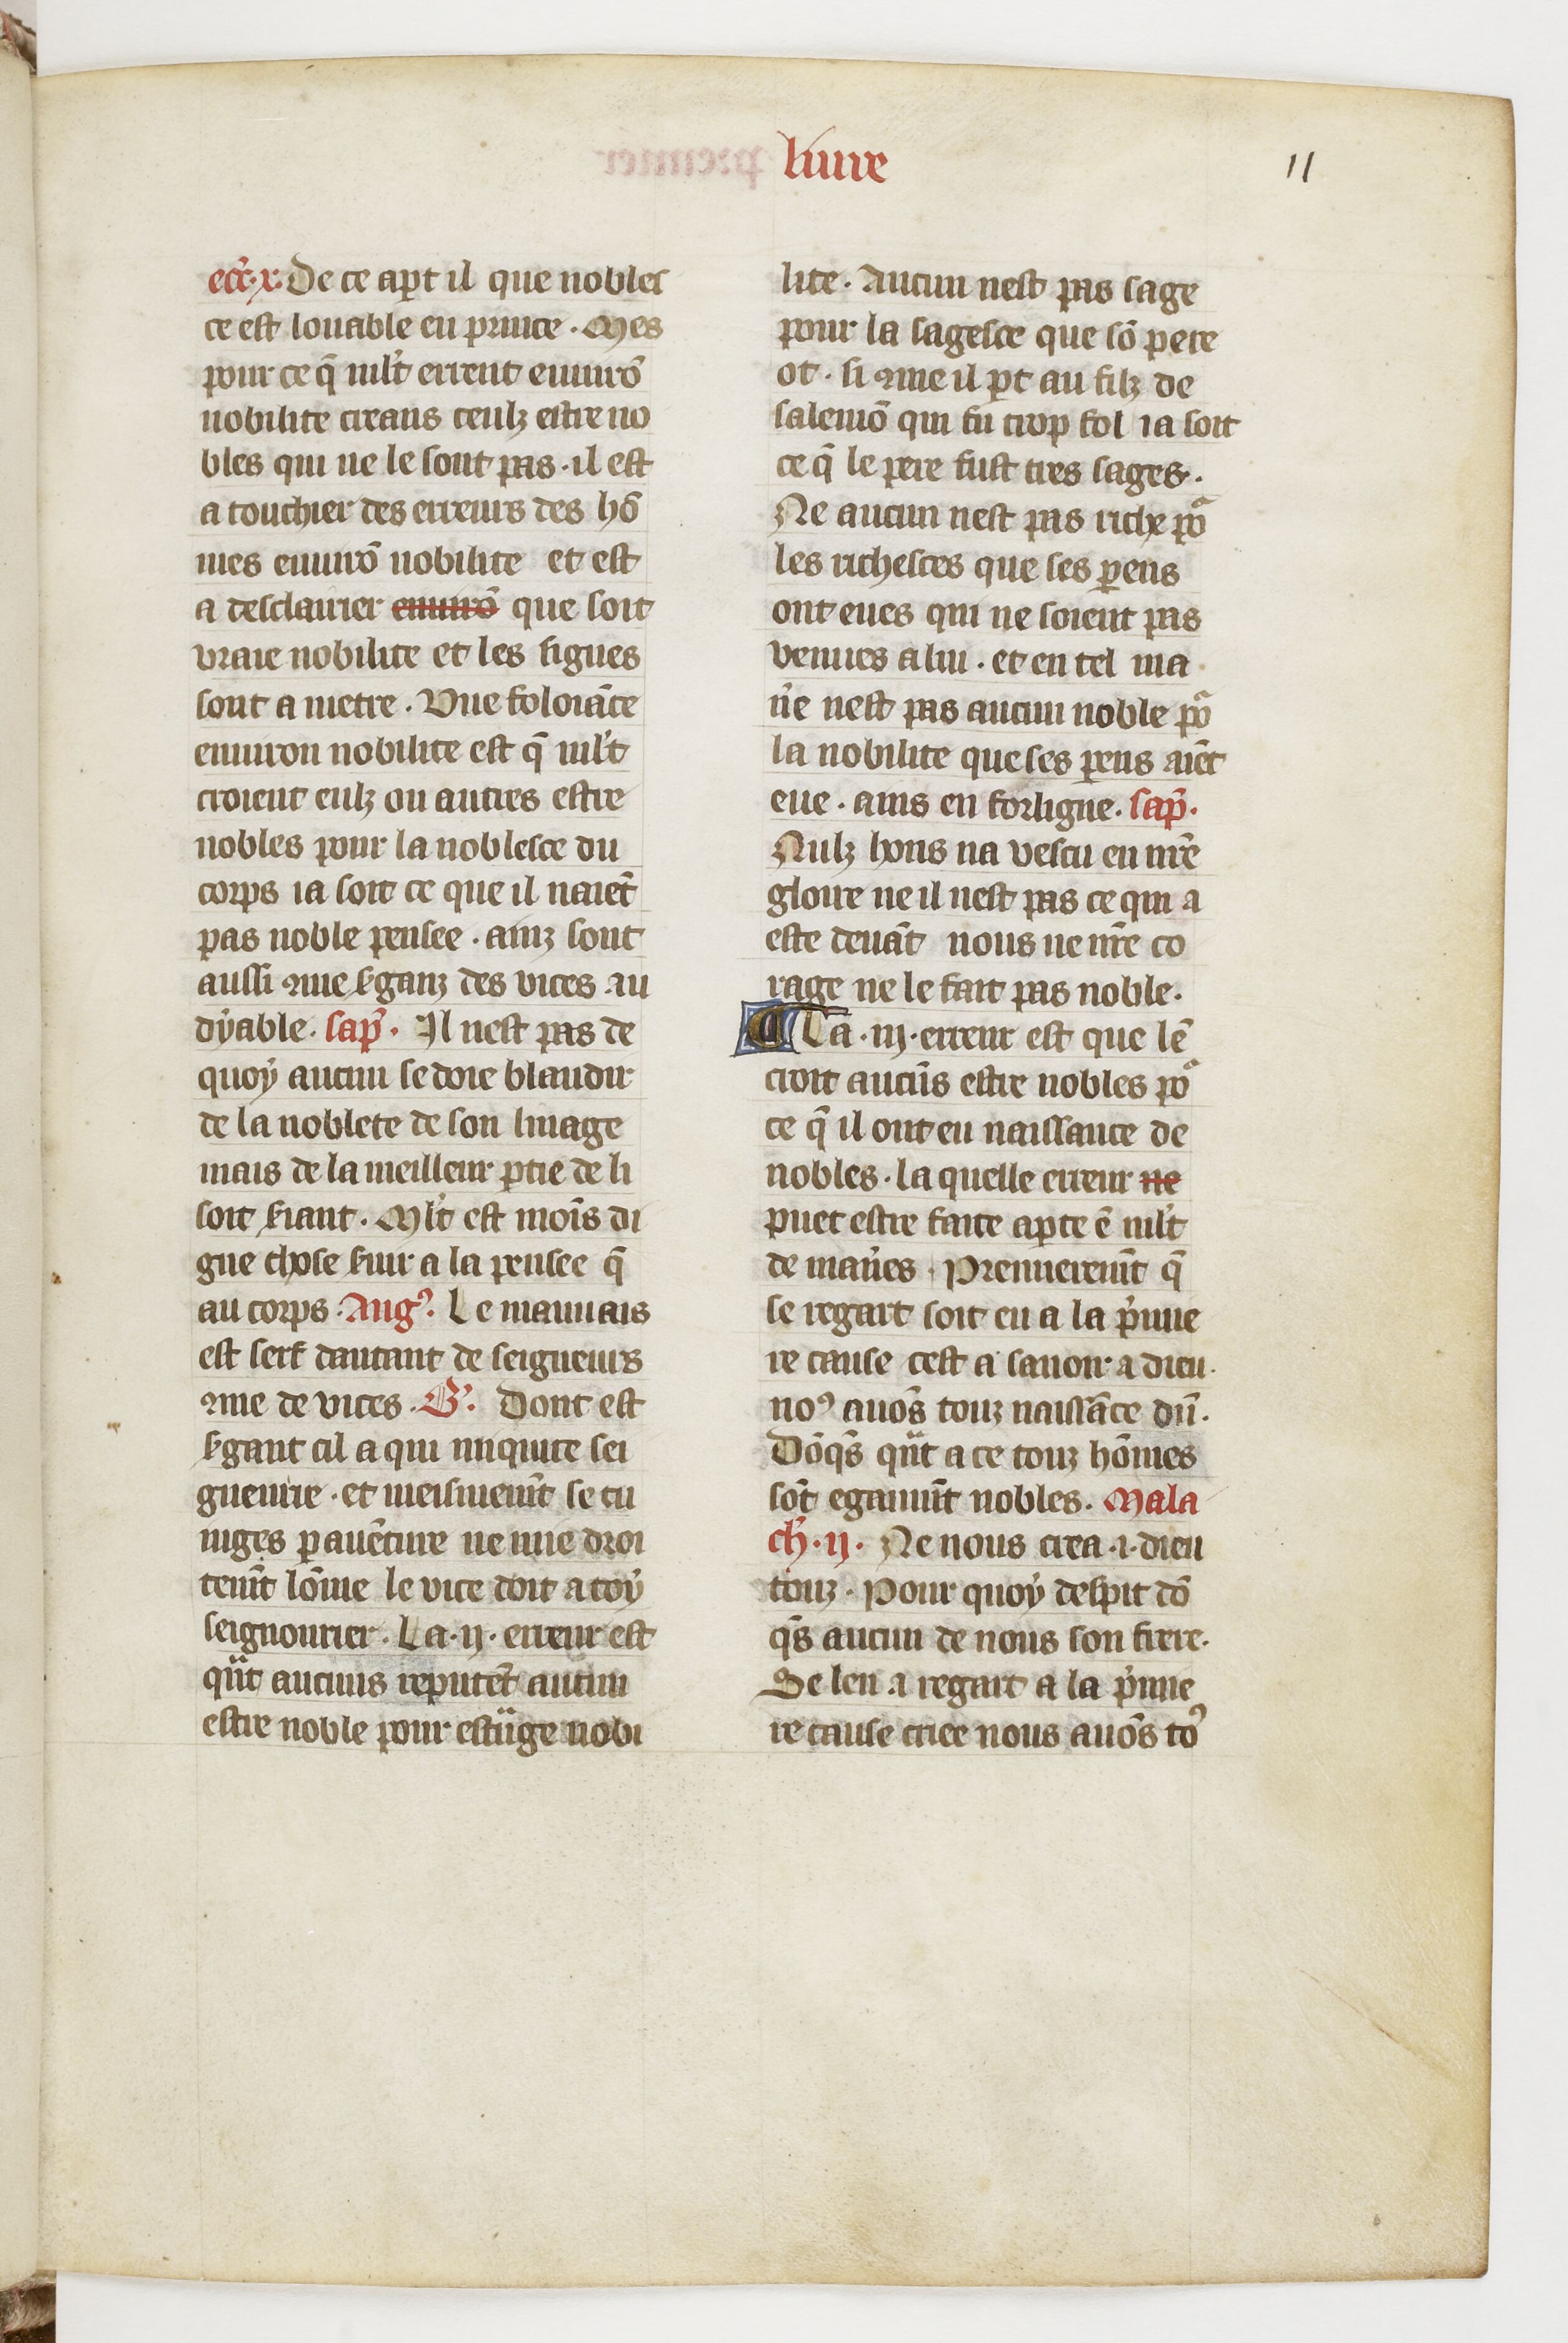 liure
11
ecc̄·x· De ce apt il que nobles
ce est louable en prince · Mes
pour ce q̄ mlt̄ errent enuirō
nobilite creans ceulz estre no
bles qui ne le sont pas · il est
a touchier des erreurs des hō
mes enuirō nobilite et est
a desclairier enuirō que soit
vraie nobilite et les signes
sont a metre · Vne foloiāce
enuiron nobilite est q̄ mlt̄
croient eulz ou autres estre
nobles pour la noblesce du
corps ia soit ce que il naiēt
pas noble pensee · ainz sont
aussi ꝯme s̓ganz des vices au
dyable · sap̄ · Il nest pas de
quoy aucun se doie blandir
de la noblete de son linage
mais de la meilleur ꝑtie de li
soit friant · Mlt̄ est moīs di
gne chose s̓uir a la pensee q̄
au corps · Augꝰ · Le mauuais
est serf dautant de seigneurs
ꝯme de vices · G̓ · Dont est
s̓gant cil a qui iniquite sei
gneurie · et meismemt̄ se tu
niges ꝑauēture ne mie droi
temt̄ lōme le vice doit a toy
seignourier · La · ij · erreur est
qn̄t aucuns reputēt aucun
estre noble pour estrāge nobi
lite · Aucun nest pas sage
pour la sagesce que sō pere
ot · si ꝯme il ꝑt au filz de
salemō qui fu trop fol ia soit
ce q̄ le pere fust tres sages ·
Ne aucun nest pas riche po᷑
les richesces que ses ꝑens
ont eues qui ne soient pas
venues a lui · et en tel ma
n̓e nest pas aucun noble po᷑
la nobilite que ses ꝑens aiēt
eue · ains en forligne · sap̄ ·
Nulz hons na vescu en nr̄e
gloire ne il nest pas ce qui a
este deuāt nous ne nr̄e co
rage ne le fait pas noble ·
¶ La · iij · erreur est que lē
croit aucūs estre nobles po᷑
ce q̄ il ont eu naissance de
nobles · la quelle erreur ne
puet estre faite apte ē mlt̄
de man̓es · Premieremt̄ q̄
se regart soit eu a la p̓mie
re cause cest a sauoir a dieu ·
noꝰ auōs touz naissāce dū ·
Dōq̄s qn̄t a ce touz hōmes
sōt egaumt̄ nobles · Mala
ch̓ · ij · Ne nous crea · i · dieu
touz · Pour quoy despit dō
q̄s aucun de nous son frere ·
Se len a regart a la p̓mie
re cause criee nous auōs toꝰ